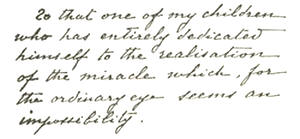 To that one of my children
who has entirely dedicated
himself to the realisation
of the miracle which, for
the ordinary eye seems an
impossibility.